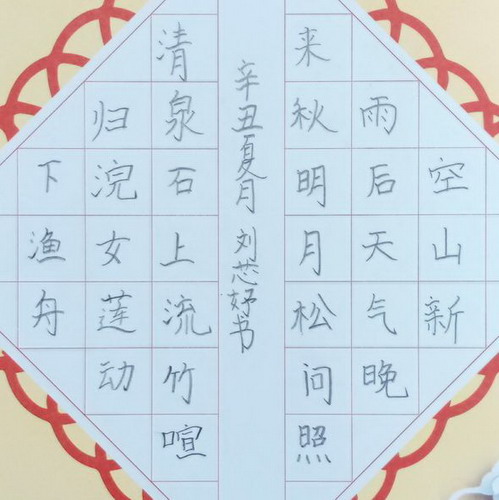 空山新
雨后天气晚
来秋明月松问照
辛丑夏月 刘芯妤书
清泉石上流竹喧
归浣女莲动
下渔舟